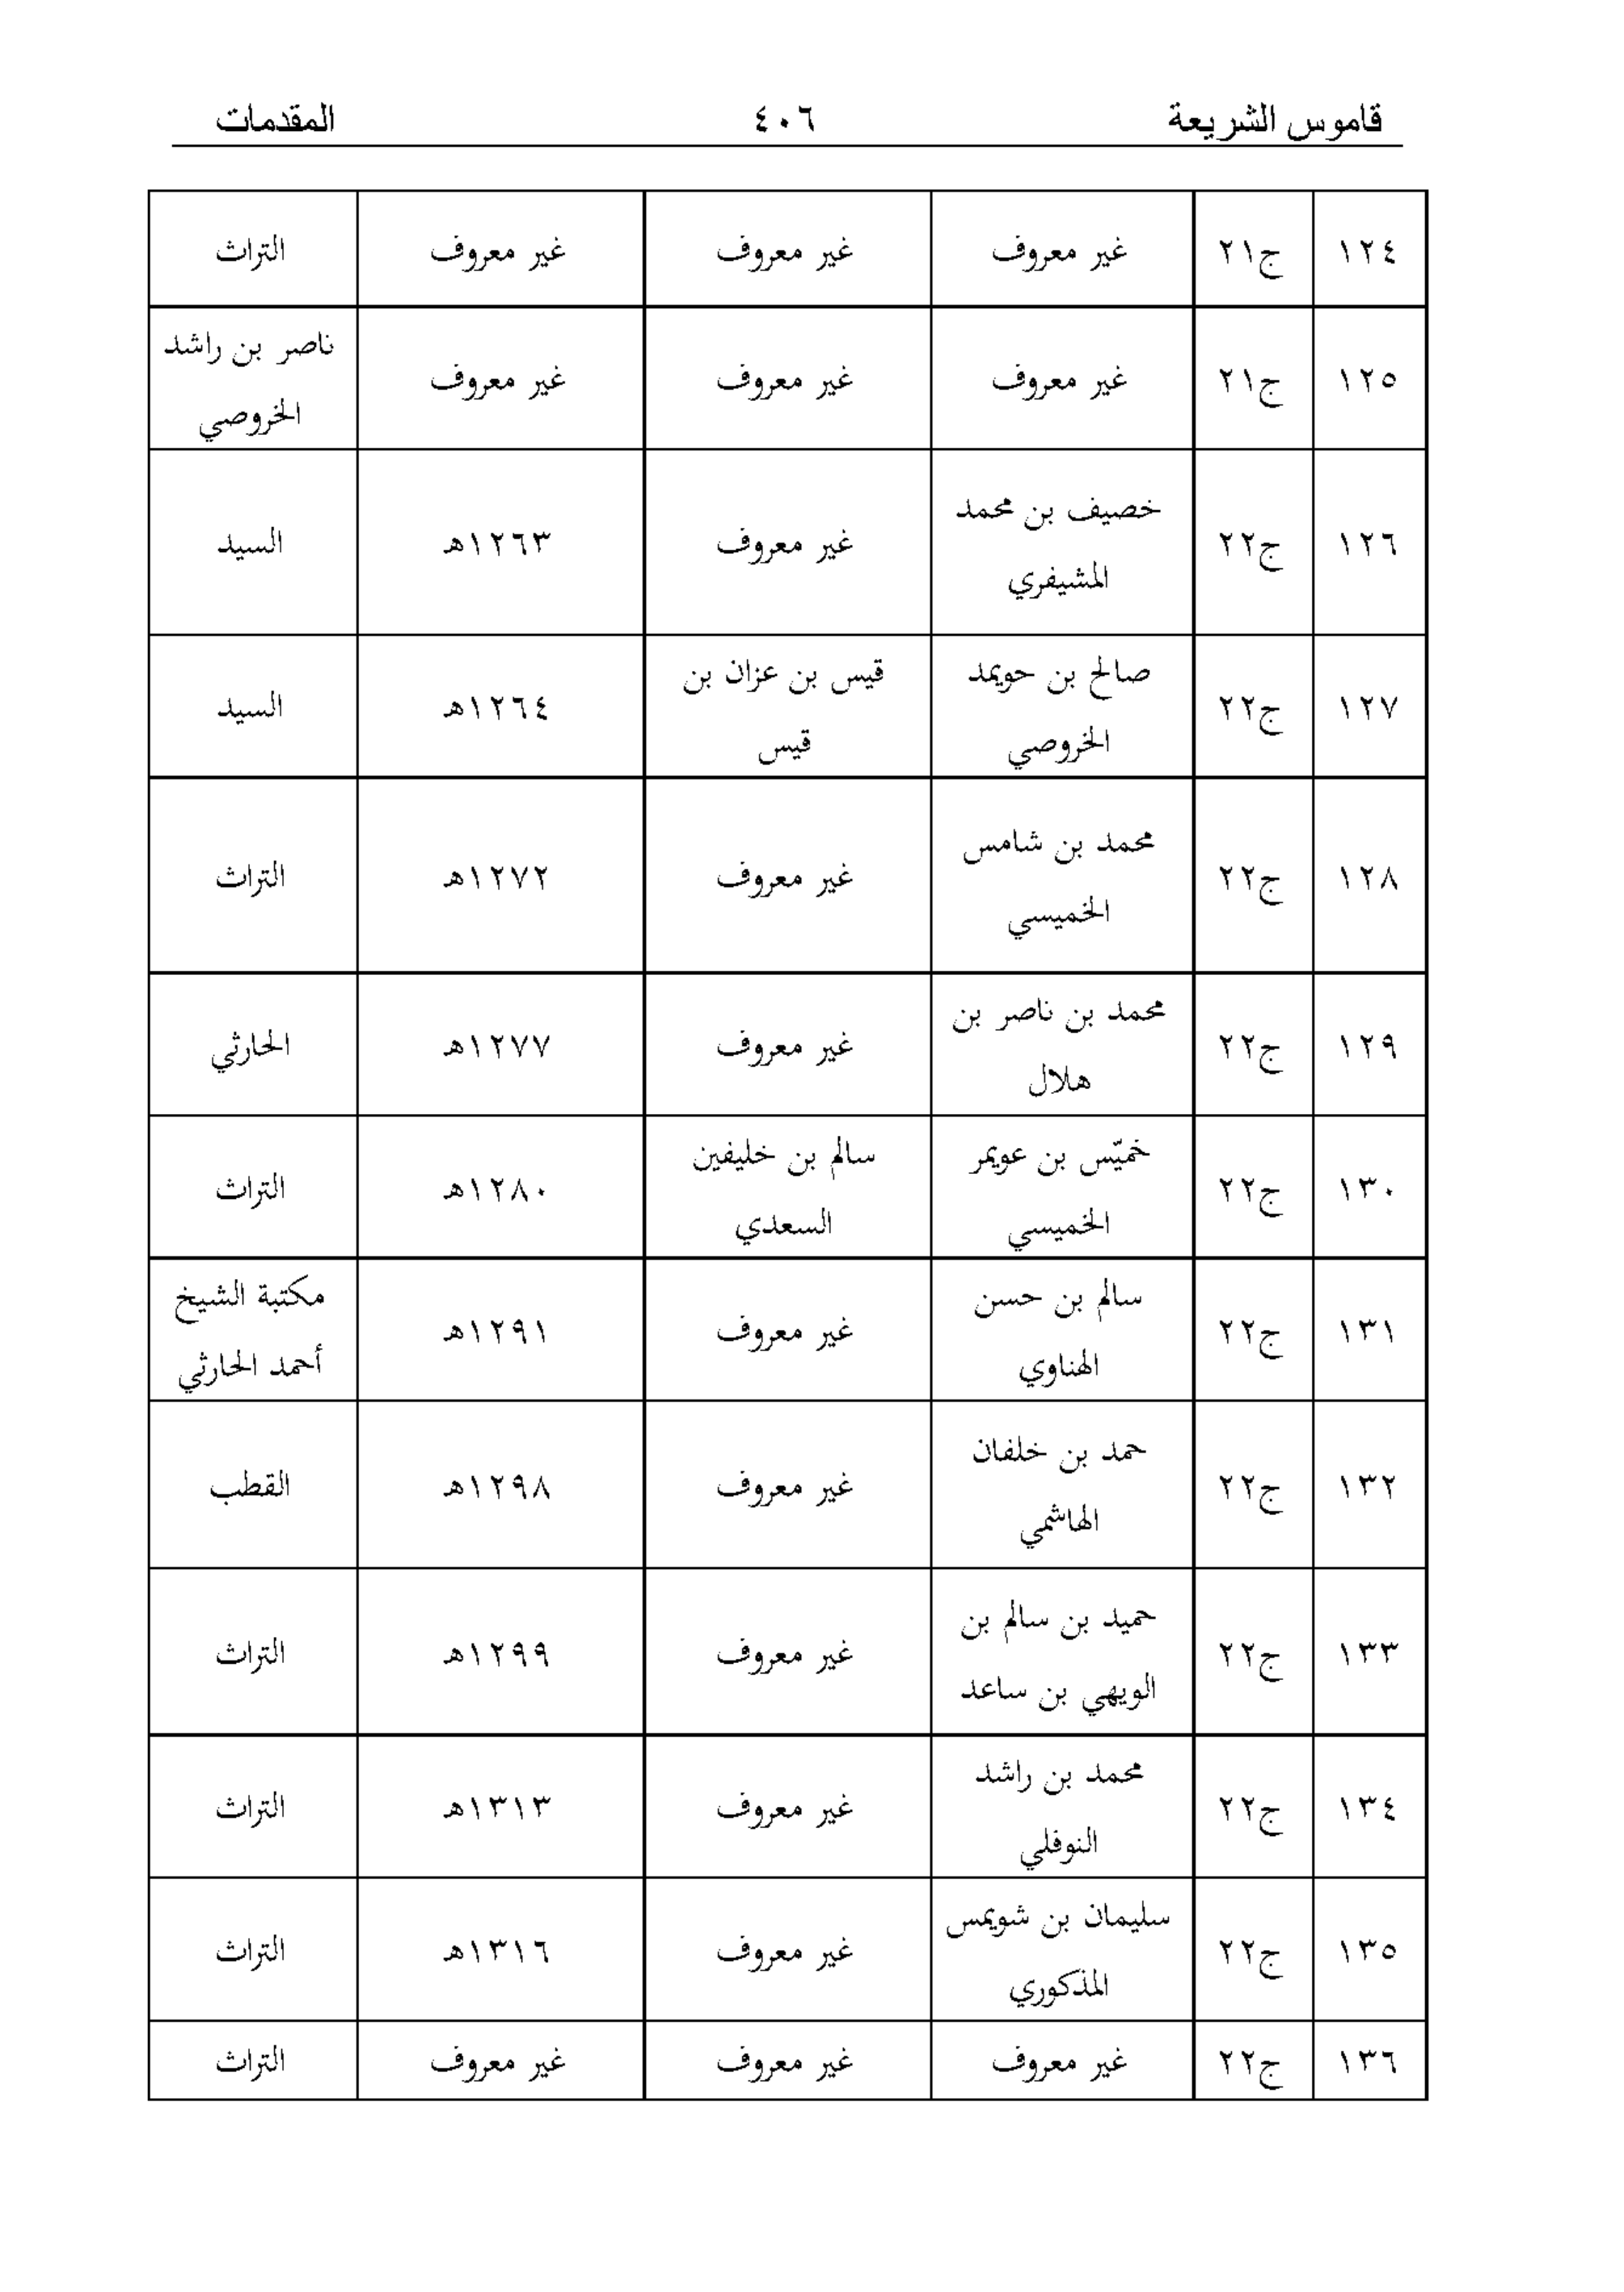 قاموس الشريعة ٤٠٦ المقدمات
١٢٤ ج٢١ غير معروف غير معروف غير معروف التراث
١٢٥ ج٢١ غير معروف غير معروف غير معروف ناصر بن راشد
الخروصي
١٢٦ ج٢٢ خصيف بن محمد
المشيفري غير معروف ١٢٦٣هـ السيد
١٢٧ ج٢٢ صالح بن حويمد
الخروصي قيس بن عزان بن
قيس ١٢٦٤هـ السيد
١٢٨ ج٢٢ محمد بن شامس
الخميسي غير معروف ١٢٧٢هـ التراث
١٢٩ ج٢٢ محمد بن ناصر بن
هلال غير معروف ١٢٧٧هـ الحارثي
١٣٠ ج٢٢ خميّس بن عويمر
الخميسي سالم بن خليفين
السعدي ١٢٨٠هـ التراث
١٣١ ج٢٢ سالم بن حسن
الهناوي غير معروف ١٢٩١هـ مكتبة الشيخ
أحمد الحارثي
١٣٢ ج٢٢ حمد بن خلفان
الهاشمي غير معروف ١٢٩٨هـ القطب
١٣٣ ج٢٢ حميد بن سالم بن
الويهي بن ساعد غير معروف ١٢٩٩هـ التراث
١٣٤ ج٢٢ محمد بن راشد
النوفلي غير معروف ١٣١٣هـ التراث
١٣٥ ج٢٢ سليمان بن شويمس
المذكوري غير معروف ١٣١٦هـ التراث
١٣٦ ج٢٢ غير معروف غير معروف غير معروف التراث